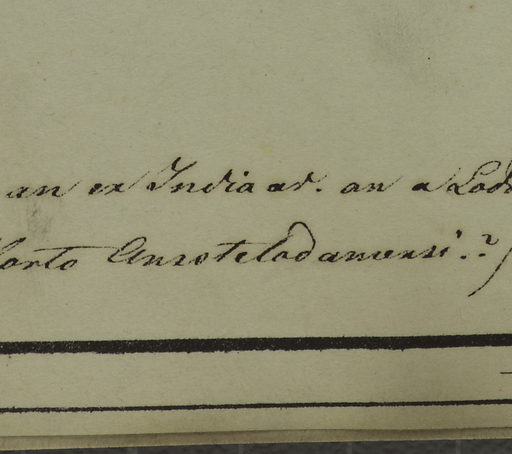 an ex India or. an a Lod
Horto Amsotelodamensi..?